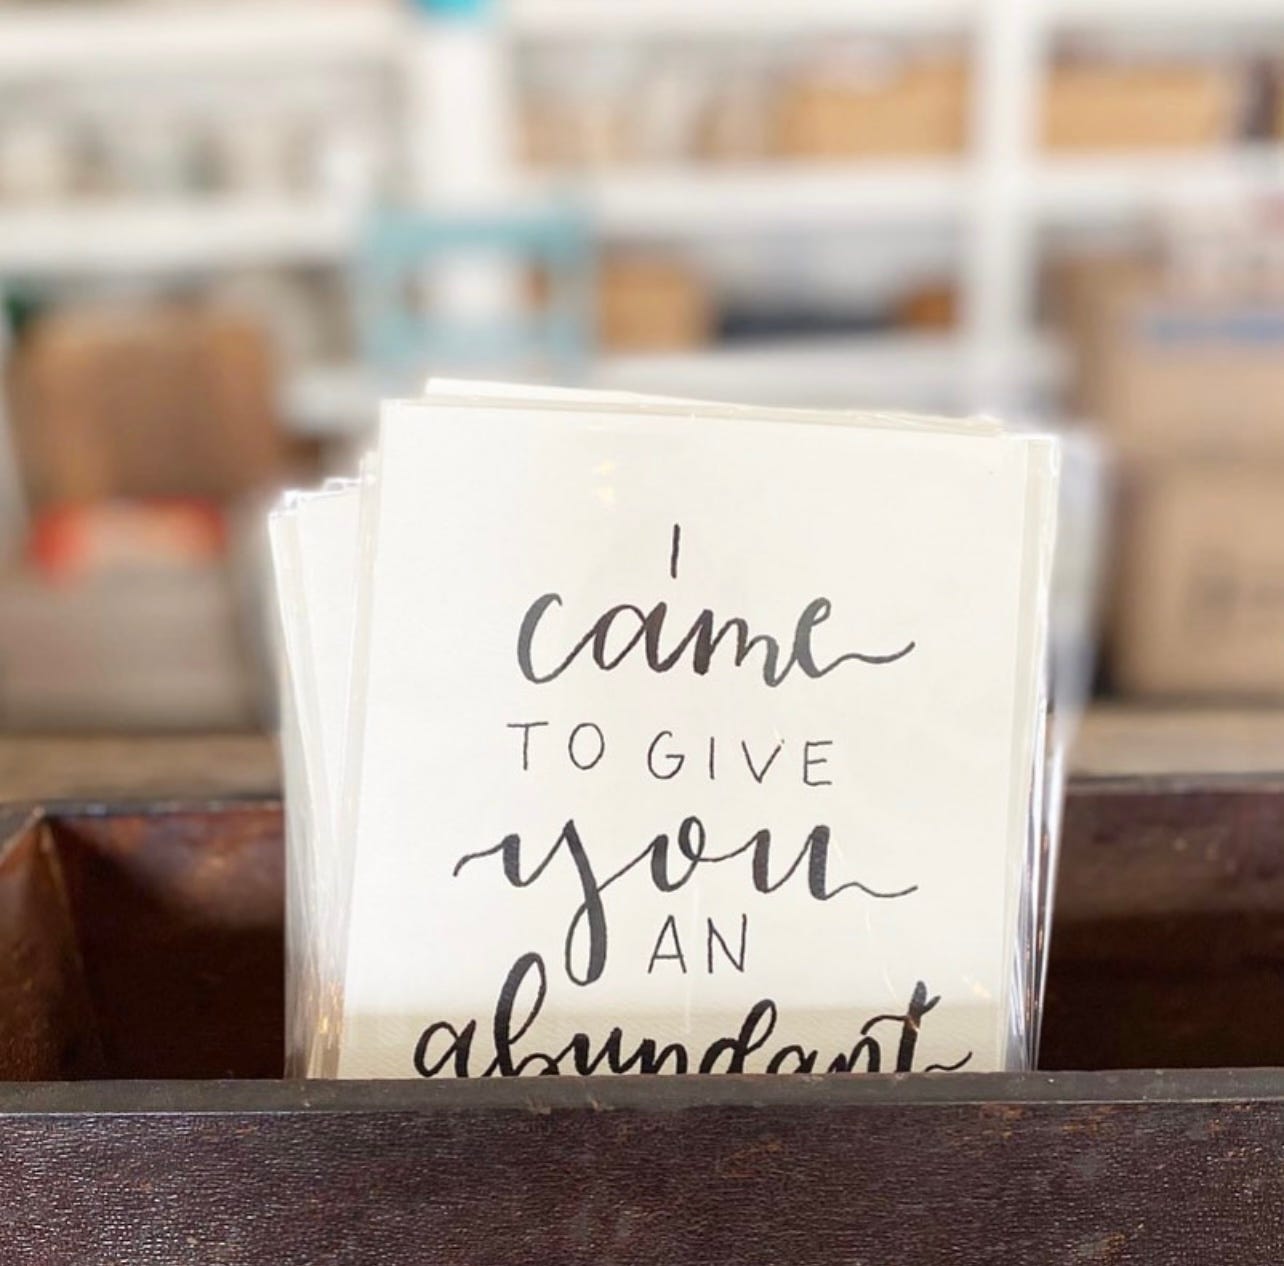 I
came
TO GIVE
you
AN
abundant